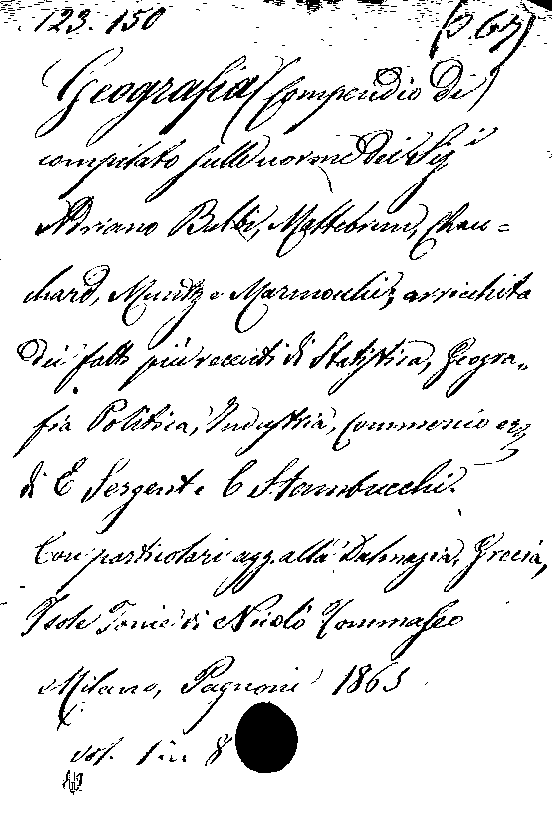 123. 150
Geografia (Compendio di)
compilato sulle norme dei Sigi
Adriano Balbi, Maltebrun, Chau-
chard, Muntz e Marmocchi, arricchita
dei fatti più recenti di Statistica, Geogra-
fia Politica, Industria, Commercio
di E Sergent e C Stambucchi.
Con particolari agg. alla Dalmazia, Grecia,
Isole Jonie di Nicolò Tommaseo
Milano, Pagnoni 1863
vol. 1 in 8